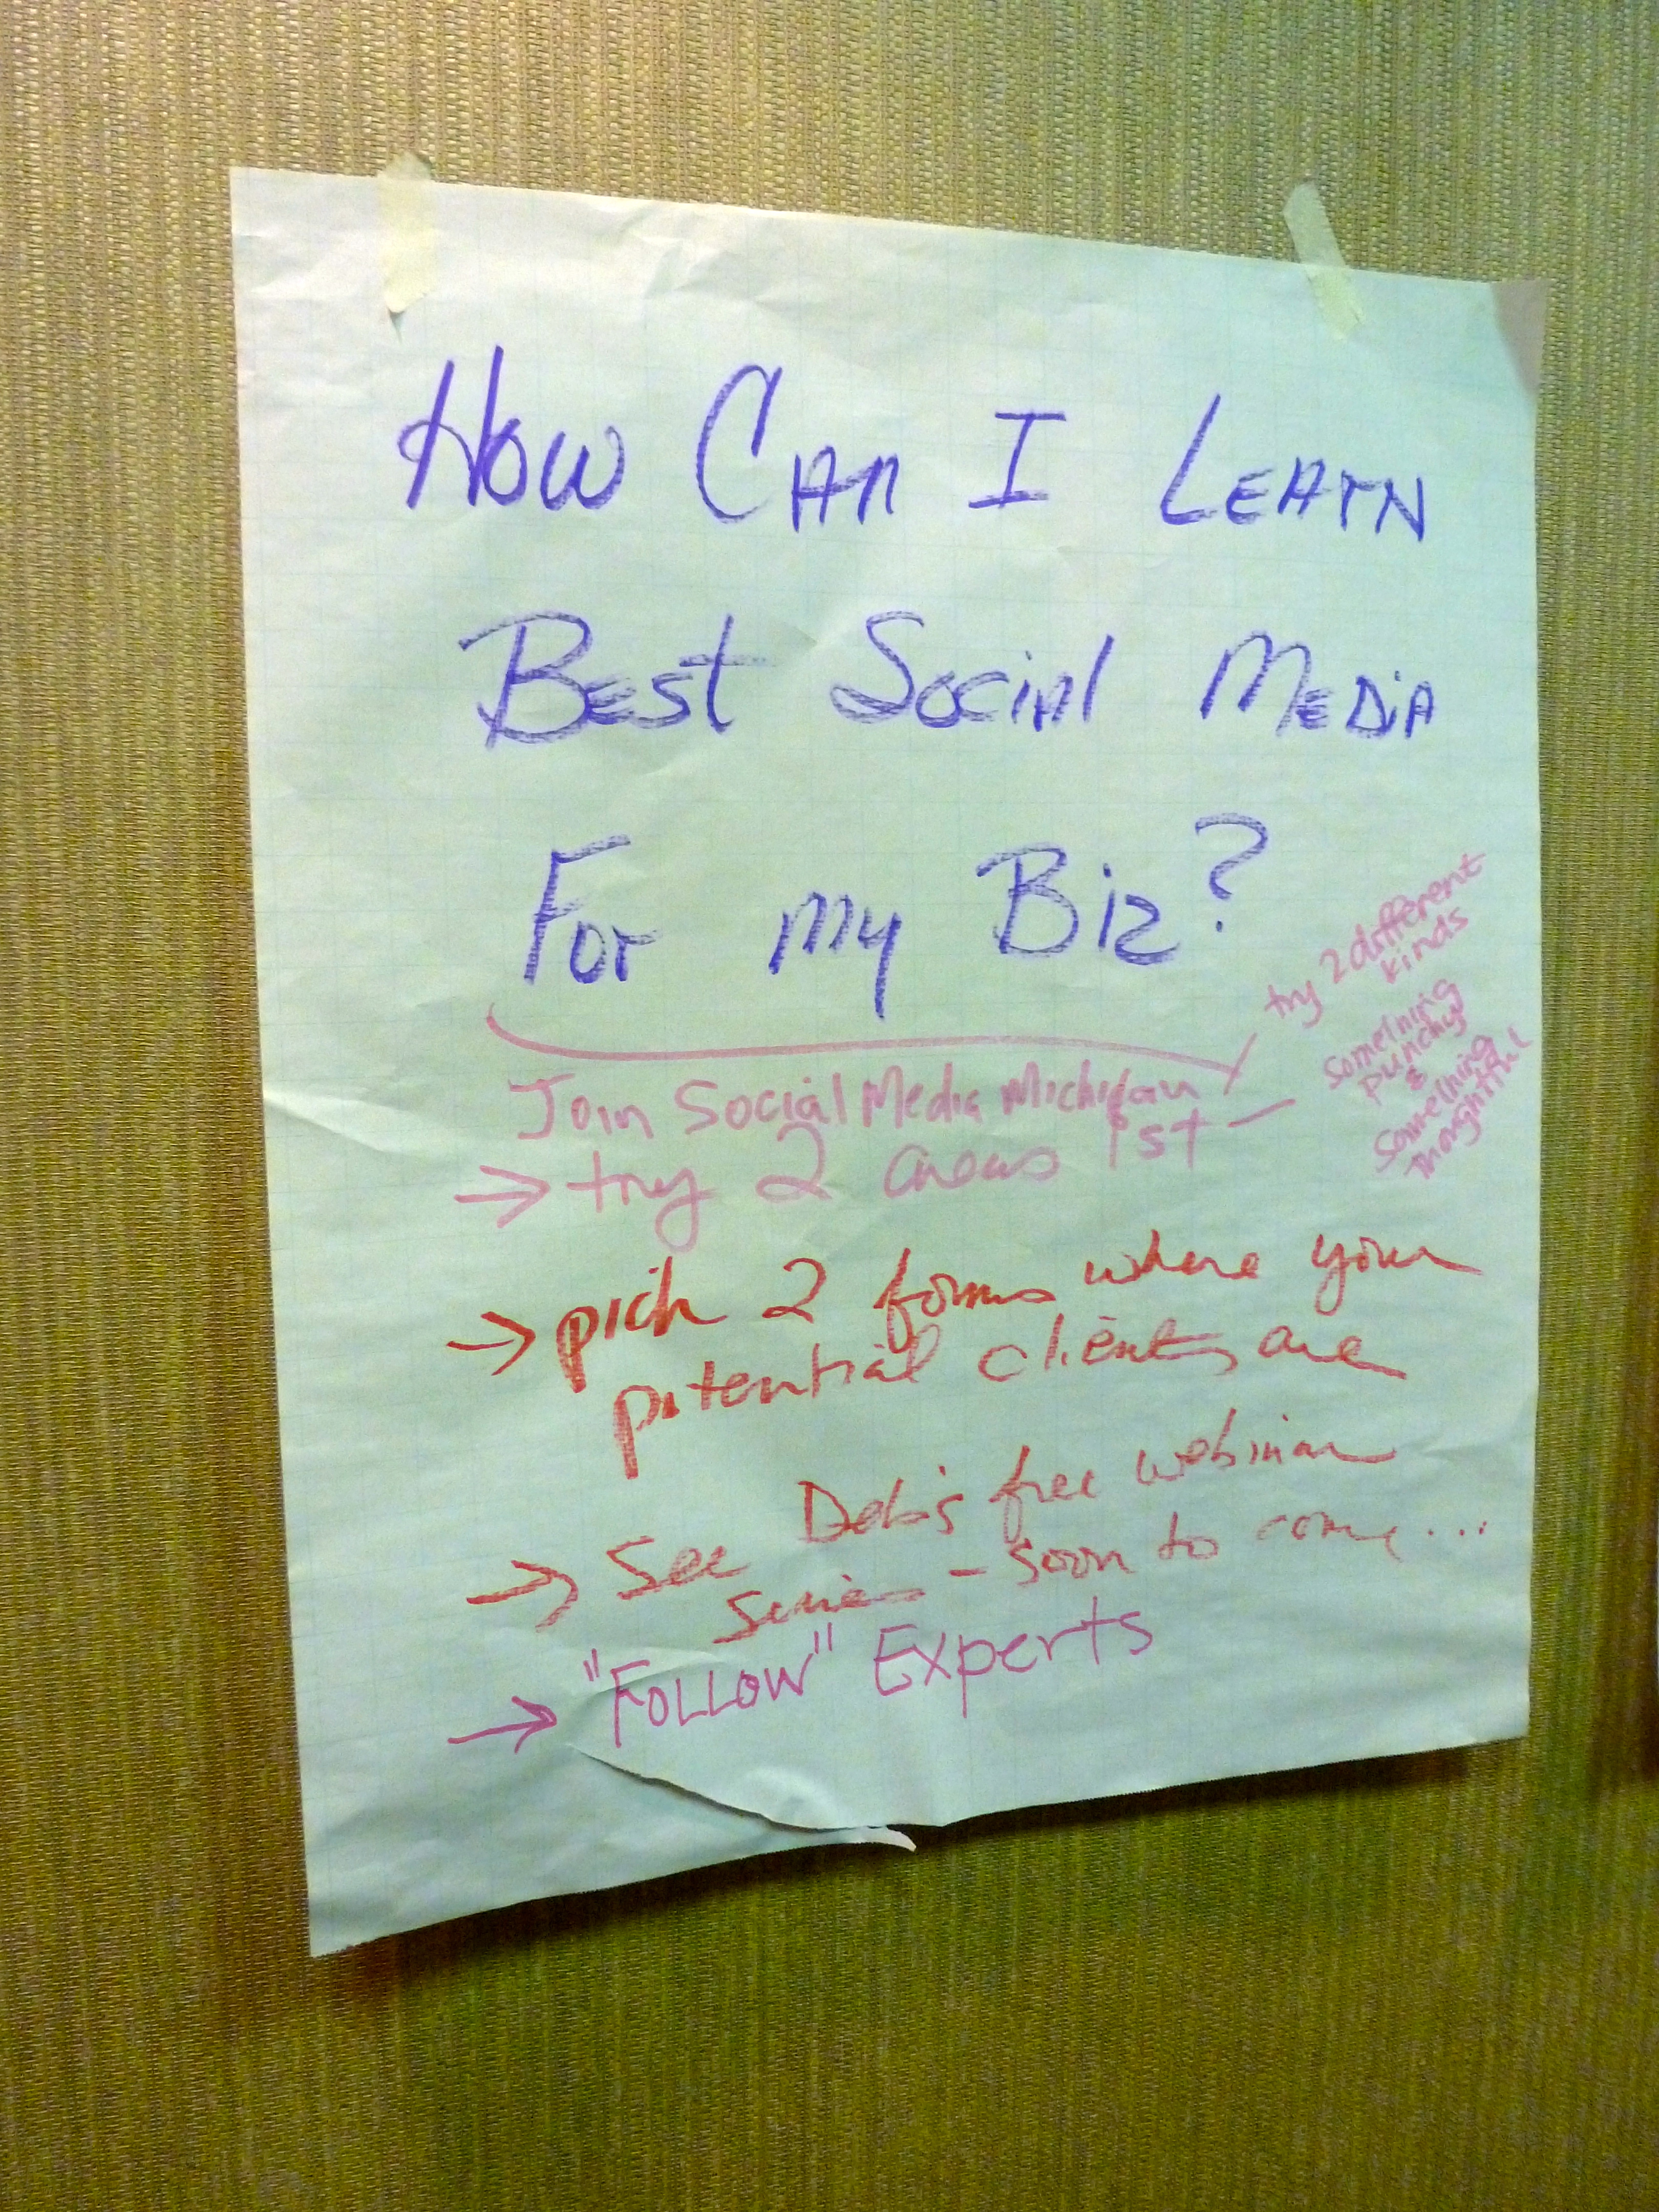 How Can I Learn
Best Social Media
For my Biz?
try 2 different
kinds
Something
punchy
&
Something
thoughtful
Join Social Media Michigan
→ try 2 areas 1st -
→ pick 2 forms where your
potential clients are
→ See Deb's free webinar
series - soon to come...
→ "Follow" Experts